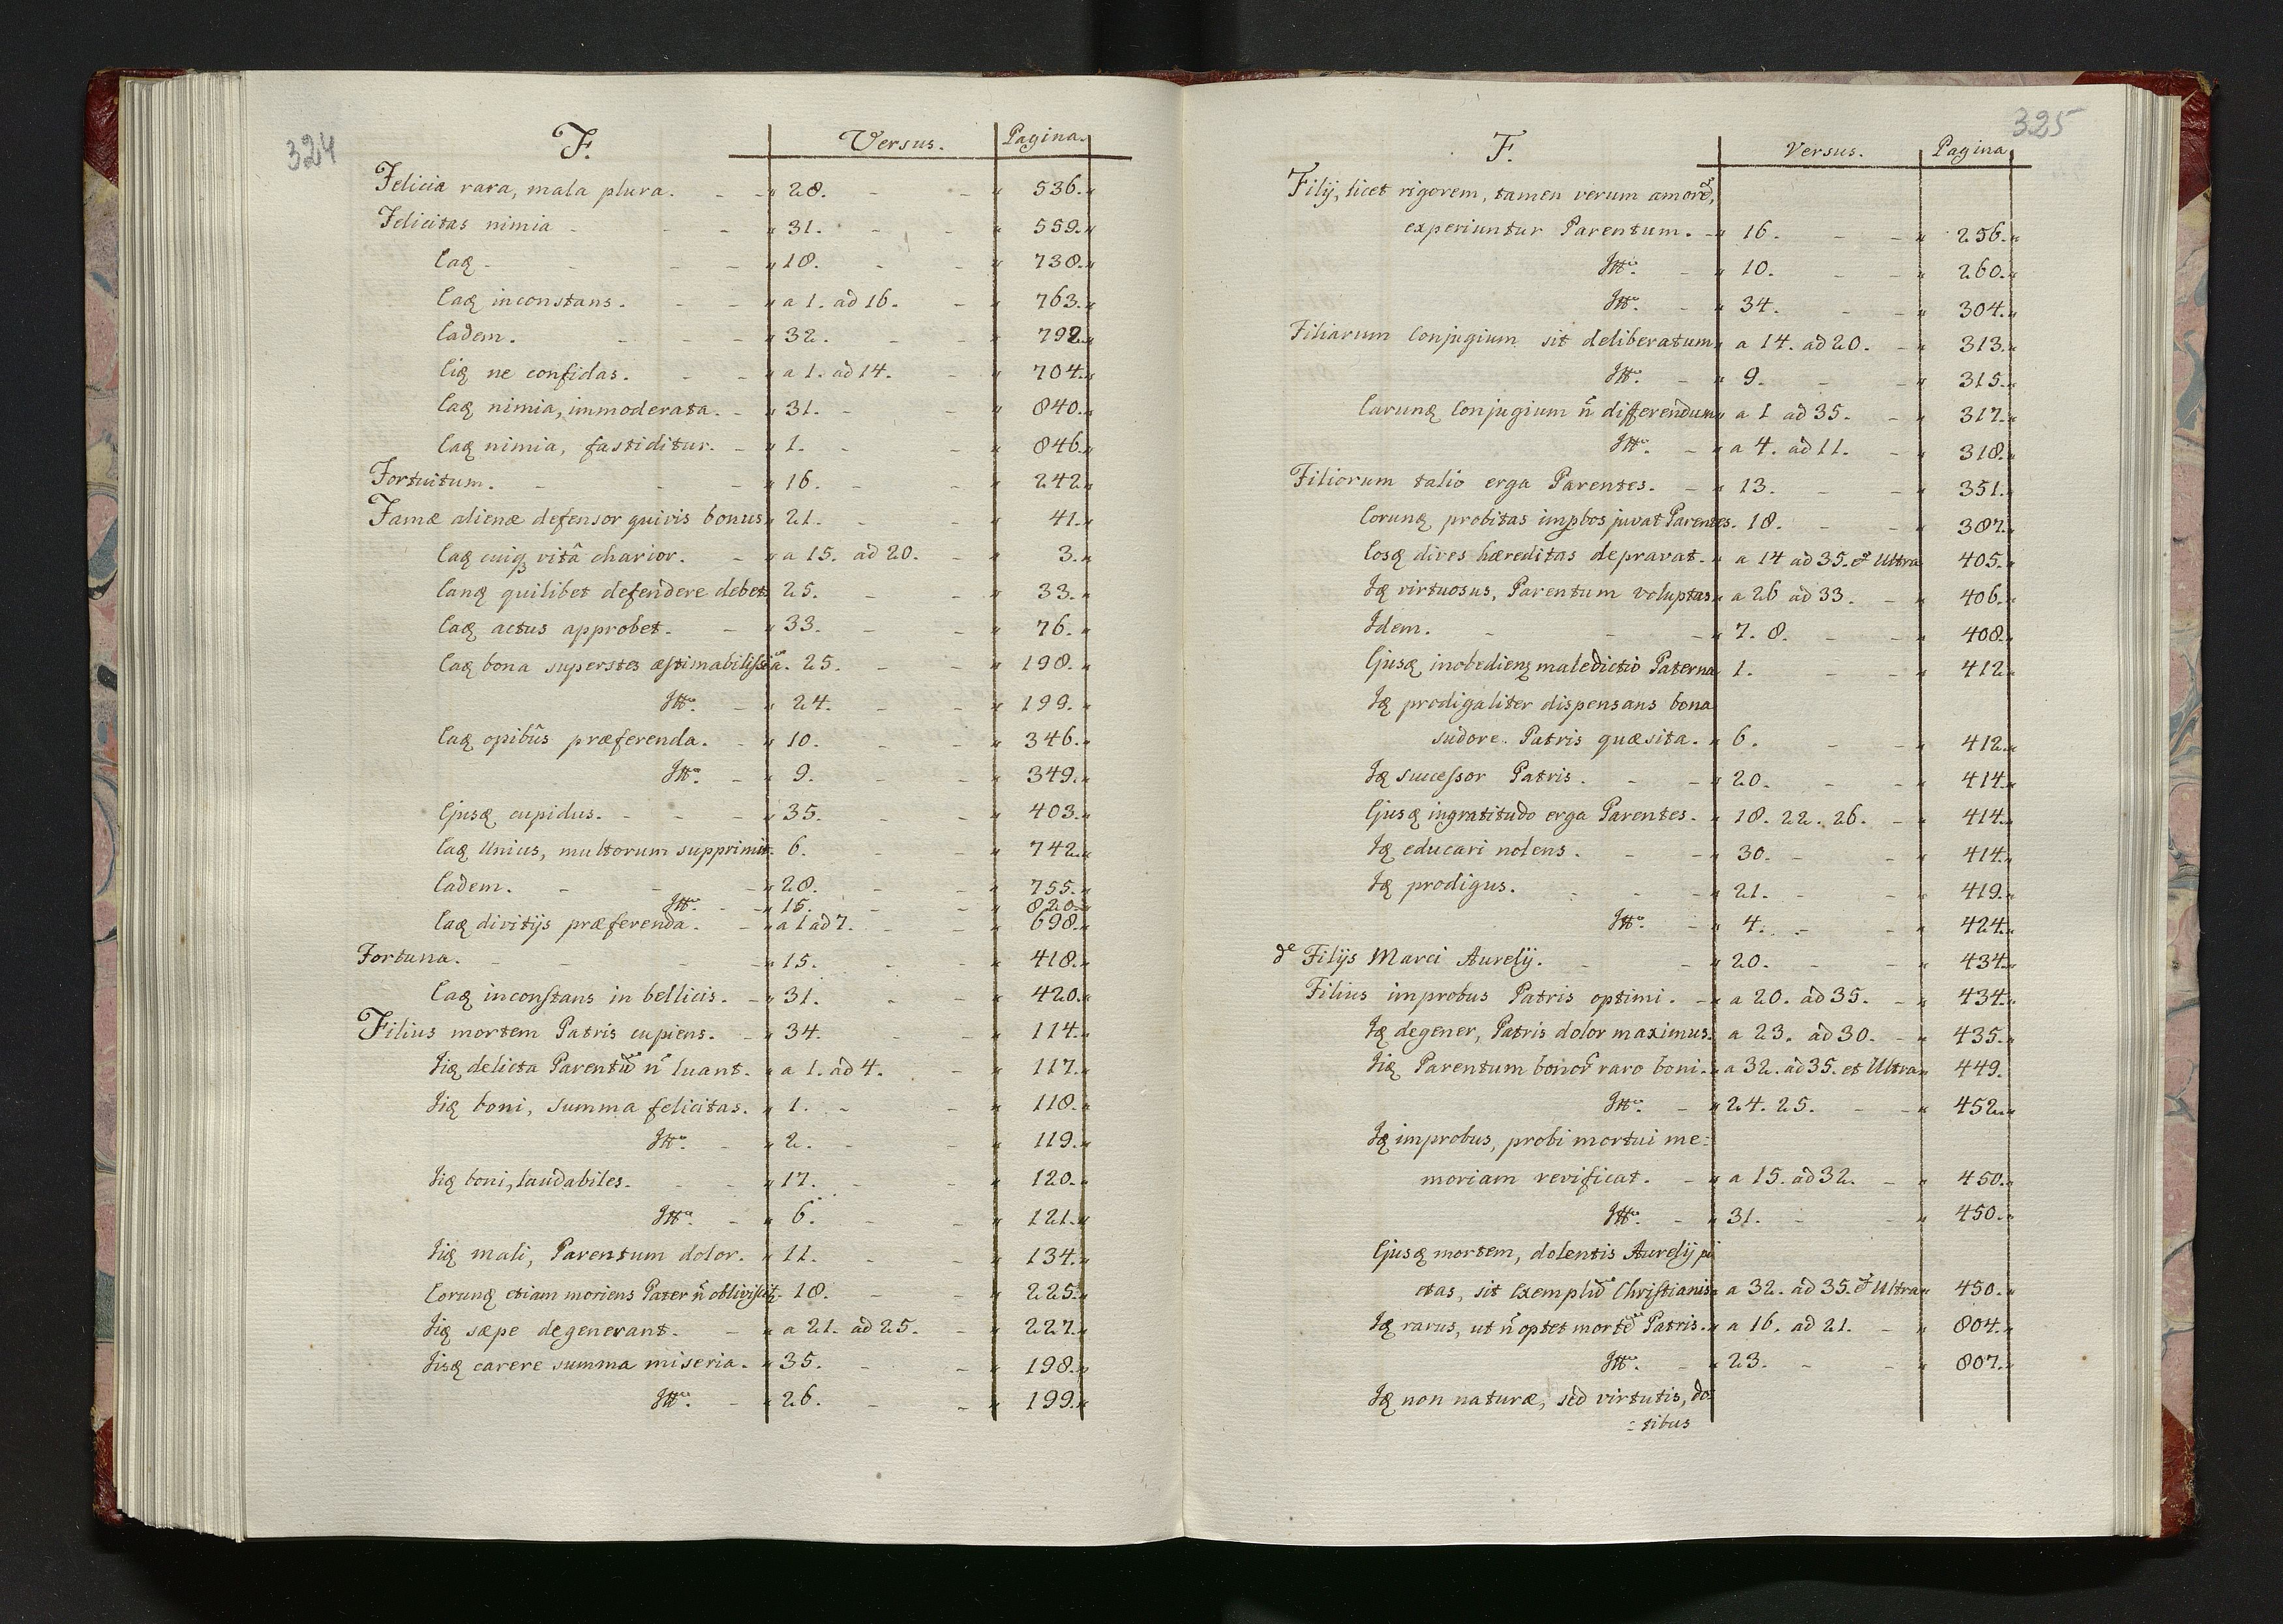 324
F. Versus. Pagina.
Felicia rara, mala plura. 28. 536.
Felicitas nimia 31. 559.
Eaq 18. 738.
Eaq inconstans. a 1. ad 16. 763.
Eadem. 32. 792
Eiq ne confidas. a 1. ad 14. 704.
Eaq nimia, immoderata. 31. 840.
Eaq nimia, fastiditur. 1. 846.
Fortuitum. 16. 242
Famæ alienæ defensor quivis bonus 21. 41.
Eaq cuiq vitâ charior. a 15. ad 20. 3.
Eanq quilibet defendere debet 25. 33.
Eaq actus approbet. 33. 76.
Eaq bona superstes æstimabilissia. 25. 198.
Itt. 24. 199.
Eaq opibûs præferenda. 10. 346.
Itt. 9. 349.
Ejusq cupidus. 35. 403.
Eaq Unius, multorum supprimit. 6. 742.
Eadem. 28. 755.
Itt. 15. 820.
Eaq divitijs præferenda. a 1 ad 7. 698.
Fortuna. 15. 418.
Eaq inconstans in bellicis. 31. 420.
Filius mortem Patris cupiens. 34. 114.
Iiq delicta Parentũ ñ luant. a 1. ad 4. 117.
Iiq boni, summa felicitas. 1. 118.
Itt. 2. 119.
Iiq boni, laudabiles. 17. 120.
Itt. 6. 121.
Iiq mali, Parentum dolor. 11. 134.
Eorunq etiam moriens Pater ñ obliviscitq 18. 225.
Iiq sæpe degenerant. a 21. ad 25. 227.
Iisq carere summa miseria. 35. 198.
Itt. 26. 199.
325
F. Versus. Pagina
Filij, licet rigorem, tamen verum amorẽ,
experiuntur Parentum. 16. 256.
Itt. 10. 260.
Itt. 34. 304.
Filiarum Conjugium sit deliberatum a 14. ad 20. 313.
Itt. 9. 315.
Earunq Conjugium ñ differendum a 1 ad 35. 317.
Itt. a 4. ad 11. 318.
Filiorum talio erga Parentes. 13. 351.
Eorunq probitas impbos juvat Parentes. 18. 387.
Eosq dives hæreditas depravat. a 14 ad 35. et Ultra 405.
Iq virtuosus, Parentum voluptas a 26 ad 33. 406.
Idem. 7. 8. 408.
Ejusq inobedienq maledictio Paterna 1. 412
Iq prodigaliter dispensans bona
sudore Patris quæsita. 6. 412.
Iq successor Patris. 20. 414.
Ejusq ingratitudo erga Parentes. 18. 22. 26. 414.
Iq educari nolens. 30. 414.
Iq prodigus. 21. 419.
Itt. 4. 424.
de Filijs Marci Aurelij. 20. 434.
Filius improbus Patris optimi. a 20. ad 35. 434.
Iq degener, Patris dolor maximus. a 23. ad 30. 435.
Iiq Parentum bonoȓ raro boni. a 32. ad 35. et Ultra 449.
Itt. 24. 25. 452.
Iq improbus, probi mortui me=
moriam revificat. a 15. ad 32. 450.
Itt. 31. 450.
Ejusq mortem, dolentis Aurelij pi
etas, sit Exemplũ Christianis a 32. ad 35. et Ultra 450.
Iq rarus, ut ñ optet mortẽ Patris. a 16. ad 21. 804.
Itt. 23. 807.
Iq non naturæ, sed virtutis, do=
=tibus